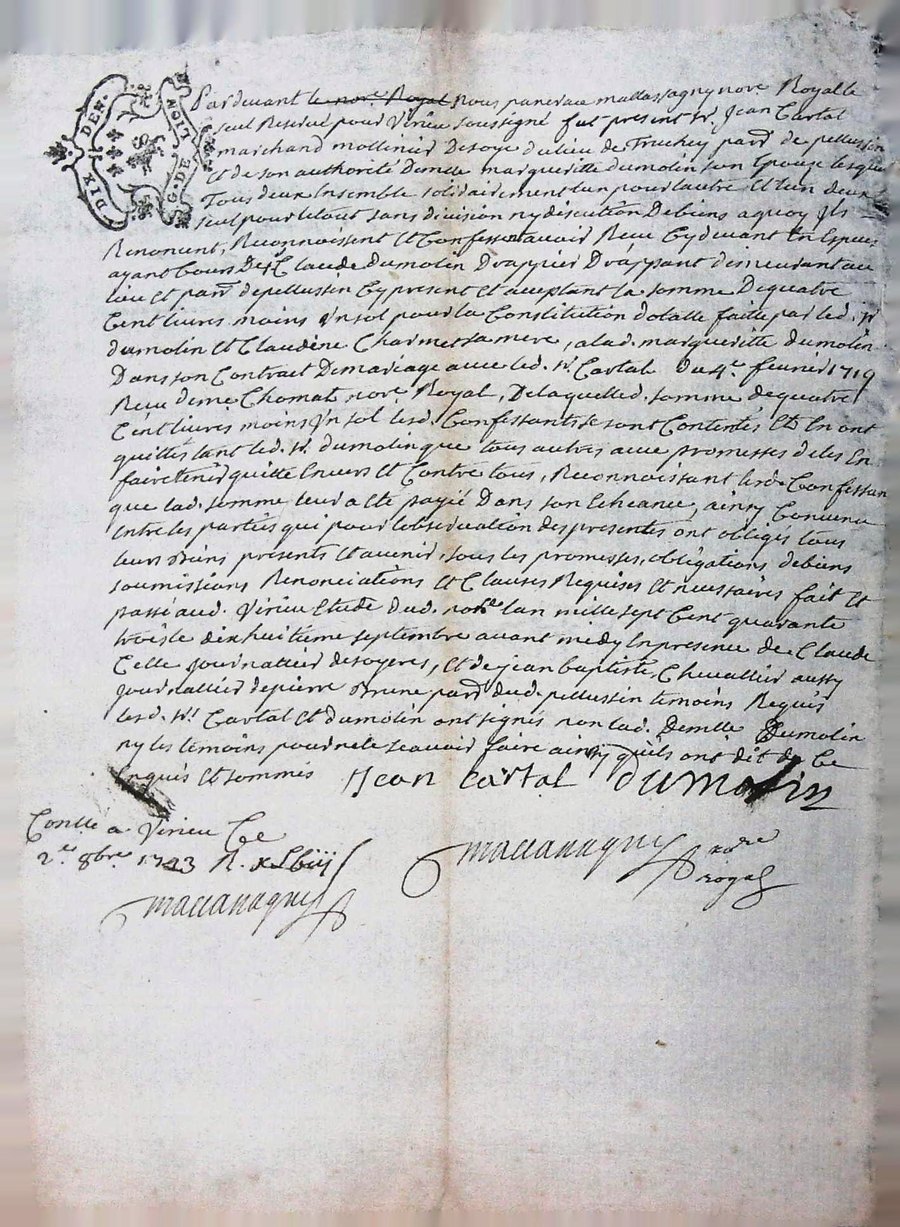 DIX DEN. G. DE LION
Pardevant le no.re Royal Nous mattassagny no.re Royalle
seul Reservé pour Virieu soussigné fut present S.r Jean Cartal
marchand mollinier de soye du lieu de Truchey par.se de pellussin
et de son authorité Demelle margueritte dumolin son Epouse lesquels
Tous deux Ensemble solidairement l'un pour l'autre et l'un deux
seul pour le tout sans division ny discution De biens a quoy Ils
Renoncent, Reconnoissent et Confessent avoir Receu Cydevant En Espece
ayant Cours De S.r Claude Dumolin Drappier Drappant demeurant au
lieu et par.se de pellussin Cy present et acceptant la somme De quatre
Cent livres moins Un sol pour la Constitution dotalle faitte par led. S.r
dumolin et Claudine Charmet sa mere, a lad. margueritte dumolin
Dans son Contract De mariage avec led. S.r Cartal du 4.e fevrier 1719
Receu de me Chomat no.re Royal, De laquelle d. somme de quatre
Cent livres moins Un sol les d. Confessants se sont Contentés et En ont
quittés tant led. S.r dumolin que tous autres avec promesses de les En
faire tenir quitte Envers et Contre tous, Reconnoissant les d. Confessan
que lad. somme leur a été payée Dans son Echeance, ainsy Convenu
Entre les parties qui pour l'observation des presentes ont obligés tous
leurs Biens presents et avenir, sous les promesses, obligations de biens
soumissions Renonciations et Clauses Requises et necessaires fait et
passé aud. Virieu Etude dud. no.re lan mille sept Cent quarante
trois le dix huitieme septembre avant midy En presence de Claude
Celle Journallier de soyeres, et de jean baptiste Chevallier aussy
Journallier de pierre Brune par.se dud. pellussin temoins Requis
les d. S.rs Cartal et Dumolin ont signés non lad. Demelle Dumolin
ny les temoins pour ne le scavoir faire ainsy qu'ils ont dit de Ce
Enquis et sommés Jean Cartal dumolin
Conllé a Virieu Ce
2.e 8bre 1743 R.
no.re
royal